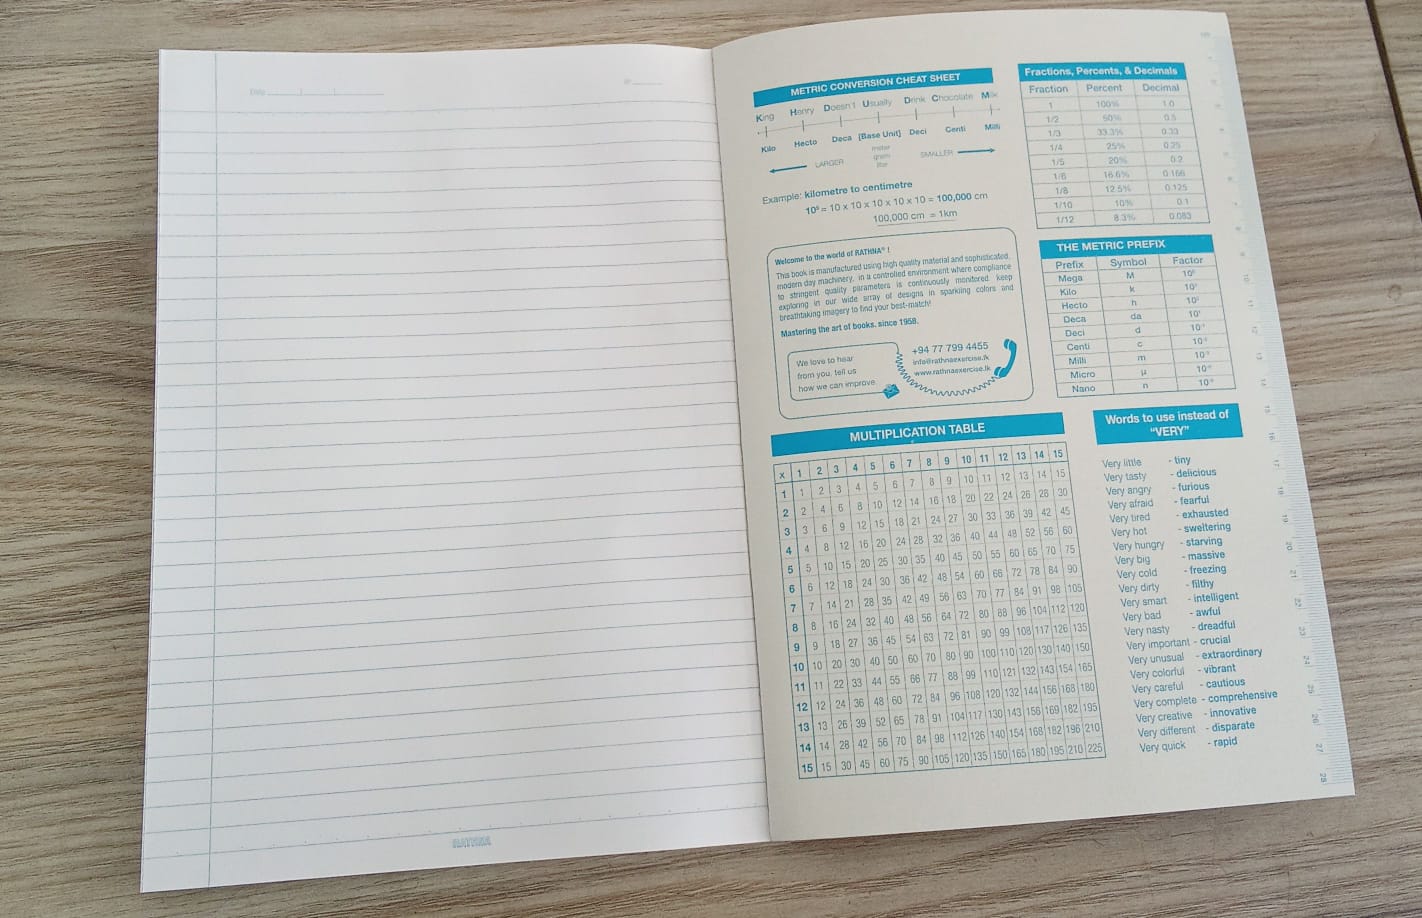 Date
RATHNA
METRIC CONVERSION CHEAT SHEET
King Henry Doesn't Usually Drink Chocolate Milk
Kilo Hecto Deca [Base Unit] Deci Centi Milli
meter
gram
liter
LARGER SMALLER
Example: kilometre to centimetre
10⁵ = 10 x 10 x 10 x 10 x 10 = 100,000 cm
100,000 cm = 1km
Welcome to the world of RATHNA® !
This book is manufactured using high quality material and sophisticated,
modern day machinery, in a controlled environment where compliance
to stringent quality parameters is continuously monitored keep
exploring in our wide array of designs in sparkling colors and
breathtaking imagery to find your best-match!
Mastering the art of books, since 1958.
We love to hear
from you, tell us
how we can improve.
+94 77 799 4455
info@rathnaexercise.lk
www.rathnaexercise.lk
MULTIPLICATION TABLE
x 1 2 3 4 5 6 7 8 9 10 11 12 13 14 15
1 1 2 3 4 5 6 7 8 9 10 11 12 13 14 15
2 2 4 6 8 10 12 14 16 18 20 22 24 26 28 30
3 3 6 9 12 15 18 21 24 27 30 33 36 39 42 45
4 4 8 12 16 20 24 28 32 36 40 44 48 52 56 60
5 5 10 15 20 25 30 35 40 45 50 55 60 65 70 75
6 6 12 18 24 30 36 42 48 54 60 66 72 78 84 90
7 7 14 21 28 35 42 49 56 63 70 77 84 91 98 105
8 8 16 24 32 40 48 56 64 72 80 88 96 104 112 120
9 9 18 27 36 45 54 63 72 81 90 99 108 117 126 135
10 10 20 30 40 50 60 70 80 90 100 110 120 130 140 150
11 11 22 33 44 55 66 77 88 99 110 121 132 143 154 165
12 12 24 36 48 60 72 84 96 108 120 132 144 156 168 180
13 13 26 39 52 65 78 91 104 117 130 143 156 169 182 195
14 14 28 42 56 70 84 98 112 126 140 154 168 182 196 210
15 15 30 45 60 75 90 105 120 135 150 165 180 195 210 225
Fractions, Percents, & Decimals
Fraction Percent Decimal
1 100% 1.0
1/2 50% 0.5
1/3 33.3% 0.33
1/4 25% 0.25
1/5 20% 0.2
1/6 16.6% 0.166
1/8 12.5% 0.125
1/10 10% 0.1
1/12 8.3% 0.083
THE METRIC PREFIX
Prefix Symbol Factor
Mega M 10⁶
Kilo k 10³
Hecto h 10²
Deca da 10¹
Deci d 10⁻¹
Centi c 10⁻²
Milli m 10⁻³
Micro μ 10⁻⁶
Nano n 10⁻⁹
Words to use instead of
“VERY”
Very little - tiny
Very tasty - delicious
Very angry - furious
Very afraid - fearful
Very tired - exhausted
Very hot - sweltering
Very hungry - starving
Very big - massive
Very cold - freezing
Very dirty - filthy
Very smart - intelligent
Very bad - awful
Very nasty - dreadful
Very important - crucial
Very unusual - extraordinary
Very colorful - vibrant
Very careful - cautious
Very complete - comprehensive
Very creative - innovative
Very different - disparate
Very quick - rapid
10
11
12
13
14
15
16
17
18
19
20
21
22
23
24
25
26
27
28